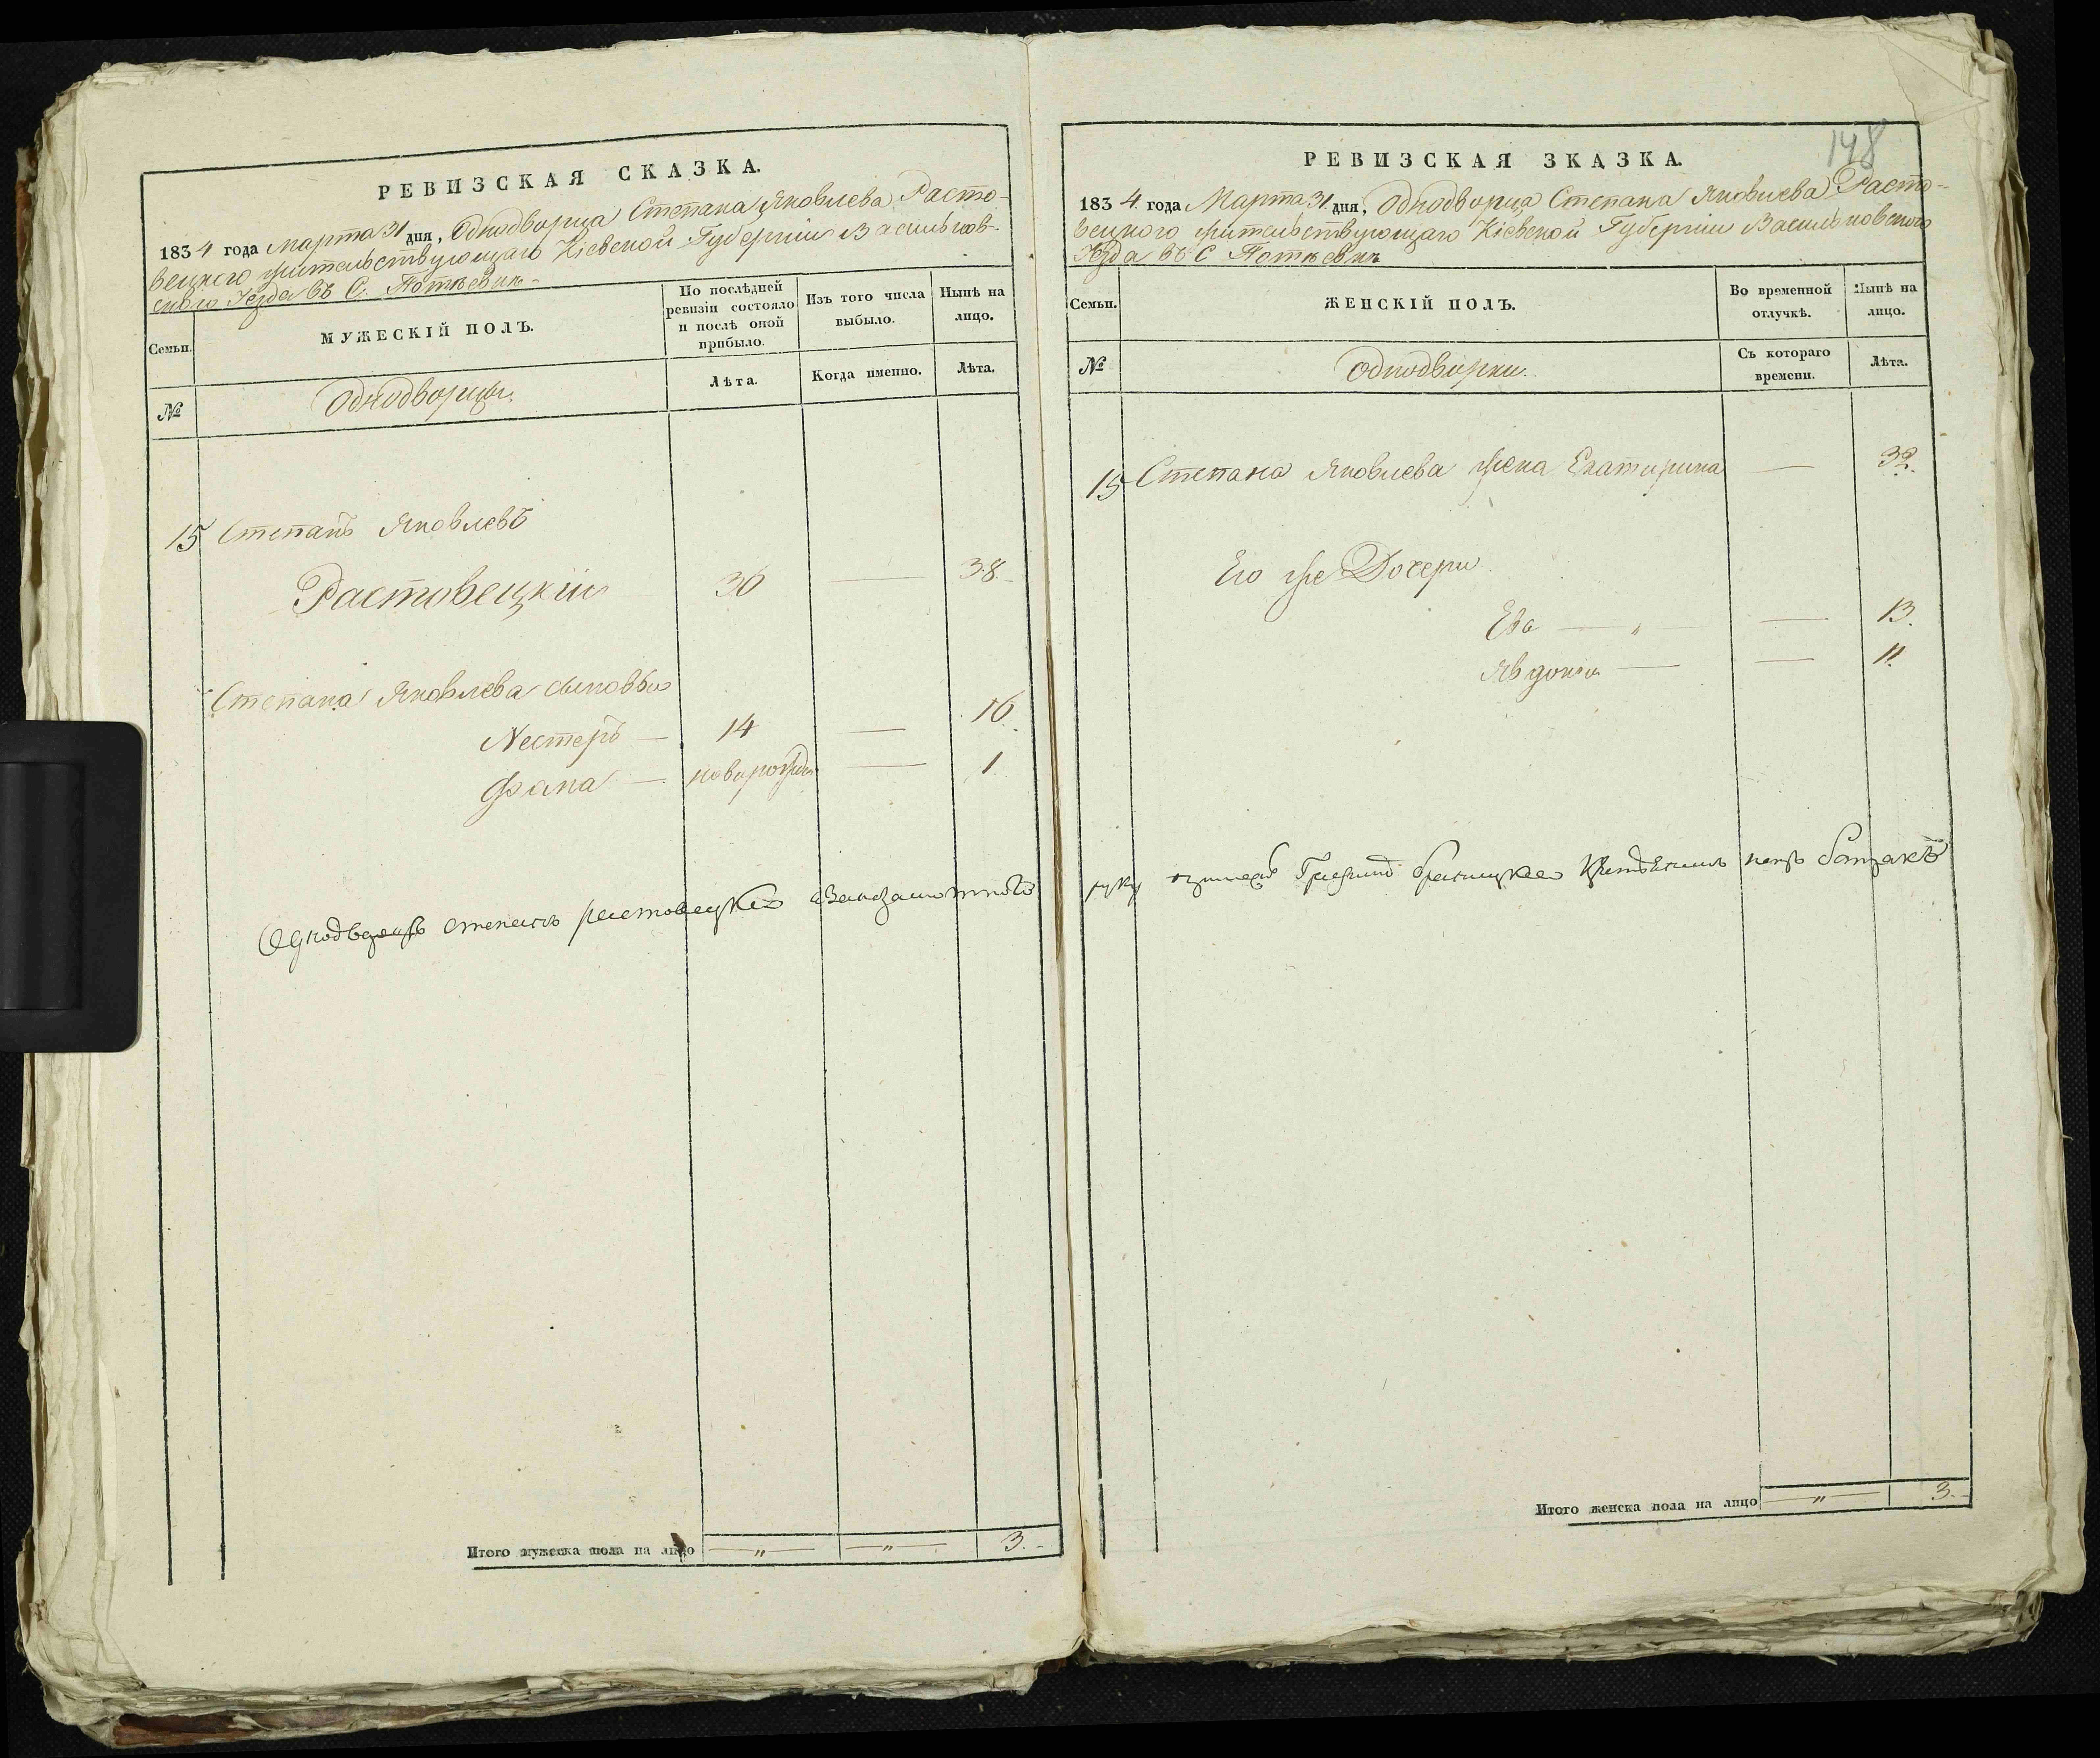 РЕВИЗСКАЯ СКАЗКА.
1834 года Марта 31 дня, Однодворца Степана Яковлева Расто-
вецкого жительствующаго Кіевской Губерніи Васильков-
скаго Уезда въ С.
Семьи.
МУЖЕСКІЙ ПОЛЪ.
По послѣдней ревизіи состояло и послѣ оной прибыло.
Изъ того числа выбыло.
Нынѣ на лицо.
№
Однодворцы.
Лѣта.
Когда именно.
Лѣта.
15 Степанъ Яковлевъ
Растовецкій 36 — 38.
Степана Яковлева сыновья
Нестеръ — 14 — 16.
— новорожд — 1
Однодворецъ степанъ растовецкій
Итого мужеска пола на лицо — „ — — „ — 3.
148
РЕВИЗСКАЯ ЗКАЗКА.
1834 года Марта 31 дня, Однодворца Степана Яковлева Расто-
вецкого жительствующаго Кіевской Губерніи Васильковского
Уезда въ С
Семьи.
ЖЕНСКІЙ ПОЛЪ.
Во временной отлучкѣ.
Нынѣ на лицо.
№
Однодворки.
Съ котораго времени.
Лѣта.
15 Степана Яковлева жена Екатирина — 32.
Его же Дочери
Ева — „ — — 13.
Явдокия — — 11.
руку
Итого женска пола на лицо — „ — 3.